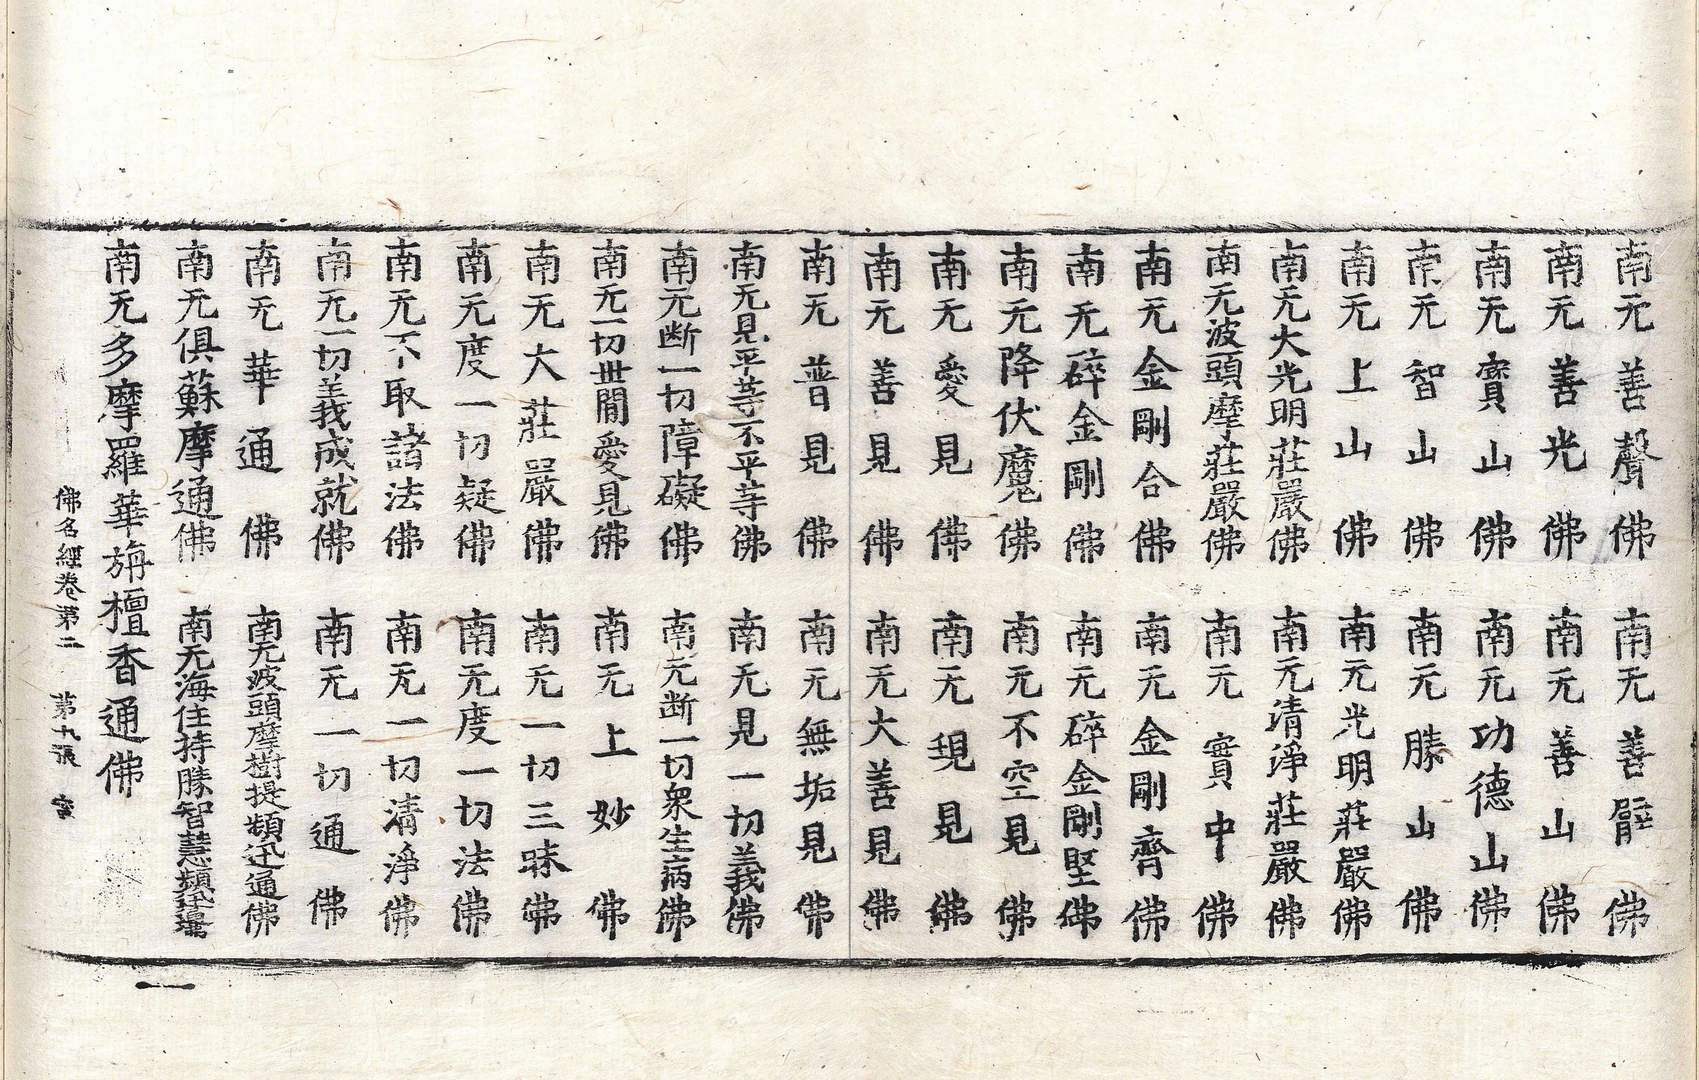 南无善聲佛 南无善臂佛
南无善光佛 南无善山佛
南无寶山佛 南无功德山佛
南无智山佛 南无勝山佛
南无上山佛 南无光明莊嚴佛
南无大光明莊嚴佛 南无清淨莊嚴佛
南无波頭摩莊嚴佛 南无寶中佛
南无金剛合佛 南无金剛齊佛
南无碎金剛佛 南无碎金剛堅佛
南无降伏魔佛 南无不空見佛
南无愛見佛 南无現見佛
南无善見佛 南无大善見佛
南无普見佛 南无無垢見佛
南无見平等不平等佛 南无見一切義佛
南无断一切障礙佛 南无断一切衆生病佛
南无一切世閒愛見佛 南无上妙佛
南无大莊嚴佛 南无一切三昧佛
南无度一切疑佛 南无度一切法佛
南无不取諸法佛 南无一切清淨佛
南无一切義成就佛 南无一切通佛
南无華通佛 南无波頭摩樹提頻迅通佛
南无俱蘇摩通佛 南无海住持勝智慧頻迅通佛
南无多摩羅華旃檀香通佛
佛名經卷第二 第九張